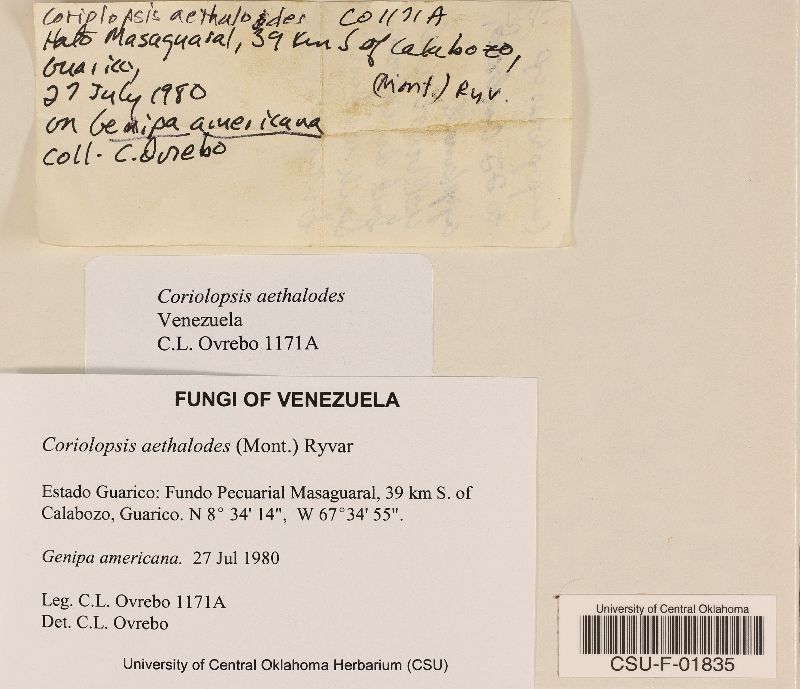 Coriolopsis aethalodes CO1171A
Hato Masaguaral, 39 km S of Calabozo,
Guarico,
27 July 1980 (Mont.) Ryv.
on Genipa americana
coll. C. Ovrebo
Coriolopsis aethalodes
Venezuela
C.L. Ovrebo 1171A
FUNGI OF VENEZUELA
Coriolopsis aethalodes (Mont.) Ryvar
Estado Guarico: Fundo Pecuarial Masaguaral, 39 km S. of
Calabozo, Guarico. N 8° 34' 14", W 67°34' 55".
Genipa americana. 27 Jul 1980
Leg. C.L. Ovrebo 1171A
Det. C.L. Ovrebo
University of Central Oklahoma Herbarium (CSU)
University of Central Oklahoma
CSU-F-01835